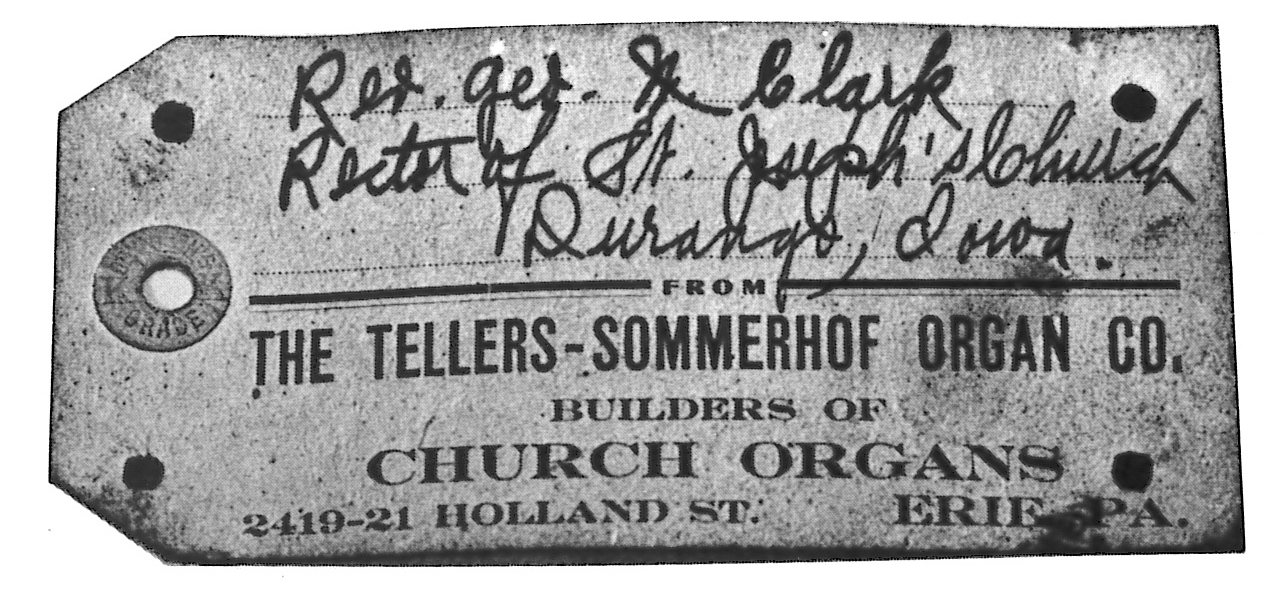 Rev. Geo. Clark
Rector of St. Joseph's Church
Durango, Iowa.
GRADE
FROM
THE TELLERS-SOMMERHOF ORGAN CO.
BUILDERS OF
CHURCH ORGANS
2419-21 HOLLAND ST. ERIE PA.